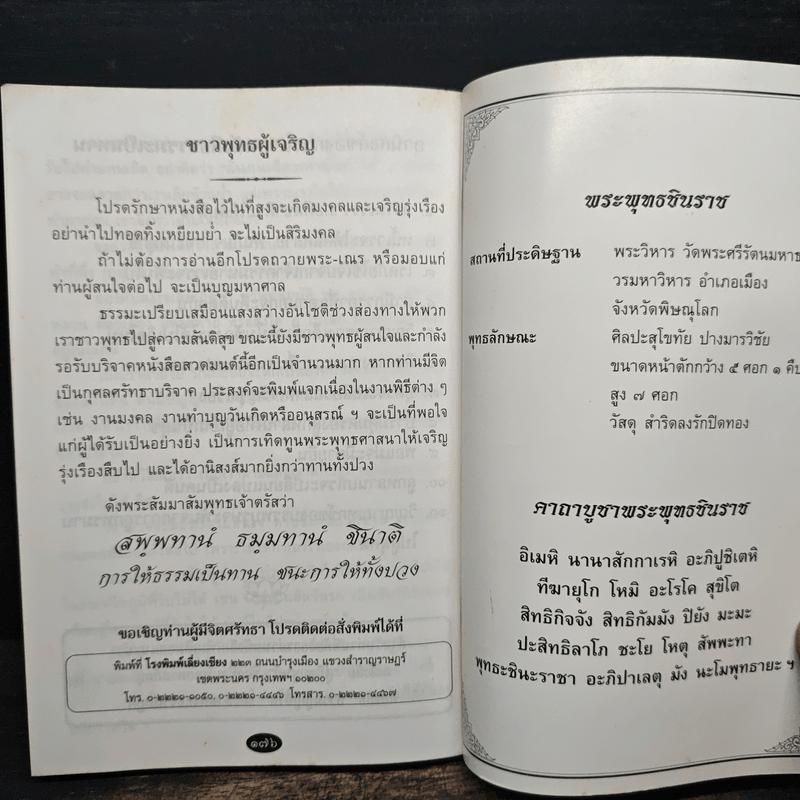 ชาวพุทธผู้เจริญ
โปรดรักษาหนังสือไว้ในที่สูงจะเกิดมงคลและเจริญรุ่งเรือง
อย่านำไปทอดทิ้งเหยียบย่ำ จะไม่เป็นสิริมงคล
ถ้าไม่ต้องการอ่านอีกโปรดถวายพระ-เณร หรือมอบแก่
ท่านผู้สนใจต่อไป จะเป็นบุญมหาศาล
ธรรมะเปรียบเสมือนแสงสว่างอันโชติช่วงส่องทางให้พวก
เราชาวพุทธไปสู่ความสันติสุข ขณะนี้ยังมีชาวพุทธผู้สนใจและกำลัง
รอรับบริจาคหนังสือสวดมนต์นี้อีกเป็นจำนวนมาก หากท่านมีจิต
เป็นกุศลศรัทธาบริจาค ประสงค์จะพิมพ์แจกเนื่องในงานพิธีต่าง ๆ
เช่น งานมงคล งานทำบุญวันเกิดหรืออนุสรณ์ ฯ จะเป็นที่พอใจ
แก่ผู้ได้รับเป็นอย่างยิ่ง เป็นการเทิดทูนพระพุทธศาสนาให้เจริญ
รุ่งเรืองสืบไป และได้อานิสงส์มากยิ่งกว่าทานทั้งปวง
ดังพระสัมมาสัมพุทธเจ้าตรัสว่า
สพฺพทานํ ธมฺมทานํ ชินาติ
การให้ธรรมเป็นทาน ชนะการให้ทั้งปวง
ขอเชิญท่านผู้มีจิตศรัทธา โปรดติดต่อสั่งพิมพ์ได้ที่
พิมพ์ที่ โรงพิมพ์เลี่ยงเชียง ๒๒๓ ถนนบำรุงเมือง แขวงสำราญราษฎร์
เขตพระนคร กรุงเทพฯ ๑๐๒๐๐
โทร. ๐-๒๒๒๑-๑๐๕๐, ๐-๒๒๒๑-๔๔๔๖ โทรสาร. ๐-๒๒๒๑-๔๔๖๗
๑๗๖
พระพุทธชินราช
สถานที่ประดิษฐาน พระวิหาร วัดพระศรีรัตนมหาธ
วรมหาวิหาร อำเภอเมือง
จังหวัดพิษณุโลก
พุทธลักษณะ ศิลปะสุโขทัย ปางมารวิชัย
ขนาดหน้าตักกว้าง ๕ ศอก ๑ คืบ
สูง ๗ ศอก
วัสดุ สำริดลงรักปิดทอง
คาถาบูชาพระพุทธชินราช
อิเมหิ นานาสักกาเรหิ อะภิปูชิเตหิ
ทีฆายุโก โหมิ อะโรโค สุขิโต
สิทธิกิจจัง สิทธิกัมมัง ปิยัง มะมะ
ปะสิทธิลาโภ ชะโย โหตุ สัพพะทา
พุทธะชินะราชา อะภิปาเลตุ มัง นะโมพุทธายะ ฯ